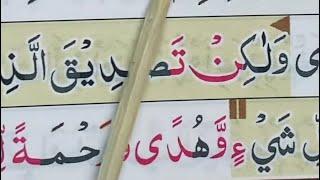 ى وَلٰكِنْ تَصْدِيْقَ الَّذِ
شَيْءٍ وَّهُدًى وَّرَحْمَةً لِّ